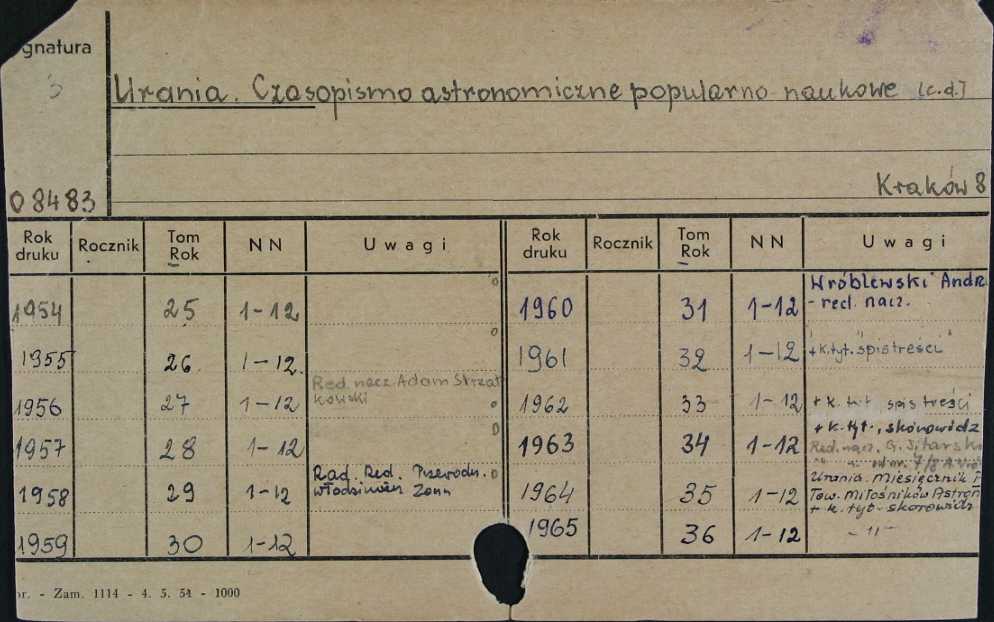 gnatura
Urania. Czasopismo astronomiczne popularno-naukowe [c.d.]
Kraków 8
08483
Rok druku Rocznik Tom Rok NN Uwagi Rok druku Rocznik Tom Rok NN Uwagi
1954 25 1-12
1955 26 1-12
Red. nacz. Adam Strzał
kowski
1956 27 1-12
1957 28 1-12
Rad. Red. Przewodn.
Włodzimierz Zonn
1958 29 1-12
1959 30 1-12
Wróblewski Andrz
- red. nacz.
1960 31 1-12
1961 32 1-12 + k. tyt. spis treści
1962 33 1-12 + k. tyt. spis treści
+ k. tyt., skorowidz
1963 34 1-12 Red. nacz. G. Sitarski
od nr. 7/8
Urania. Miesięcznik P
Tow. Miłośników Astron
1964 35 1-12 + k. tyt. skorowidz
1965 36 1-12 - " -
or. - Zam. 1114 - 4. 5. 54 - 1000